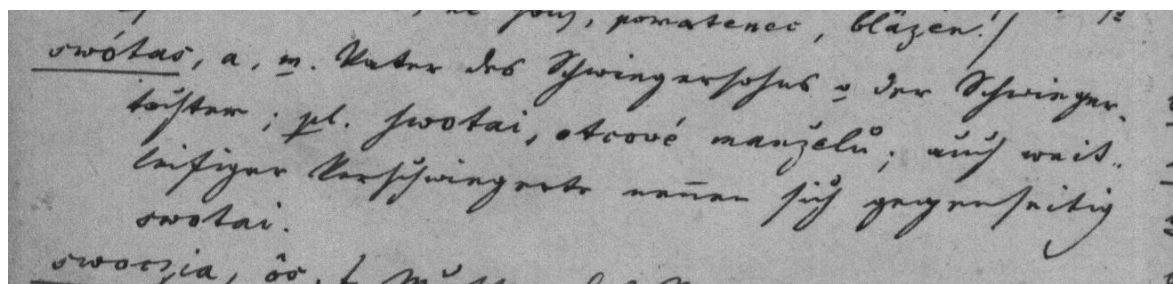 powatenec, blázen.
swótas, a, m. Vater des Schwiegersohns o der Schwieger-
tochter; pl. swotai, otcové manželů; auch weit-
leifiger Verschwiegerte nennen sich gegenseitig
swotai.
swoczia, ôs, f.